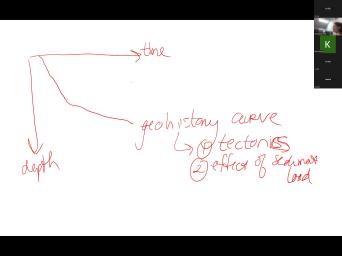 time
geohistory curve
① tectonics
② effect of sediment
load
depth
K